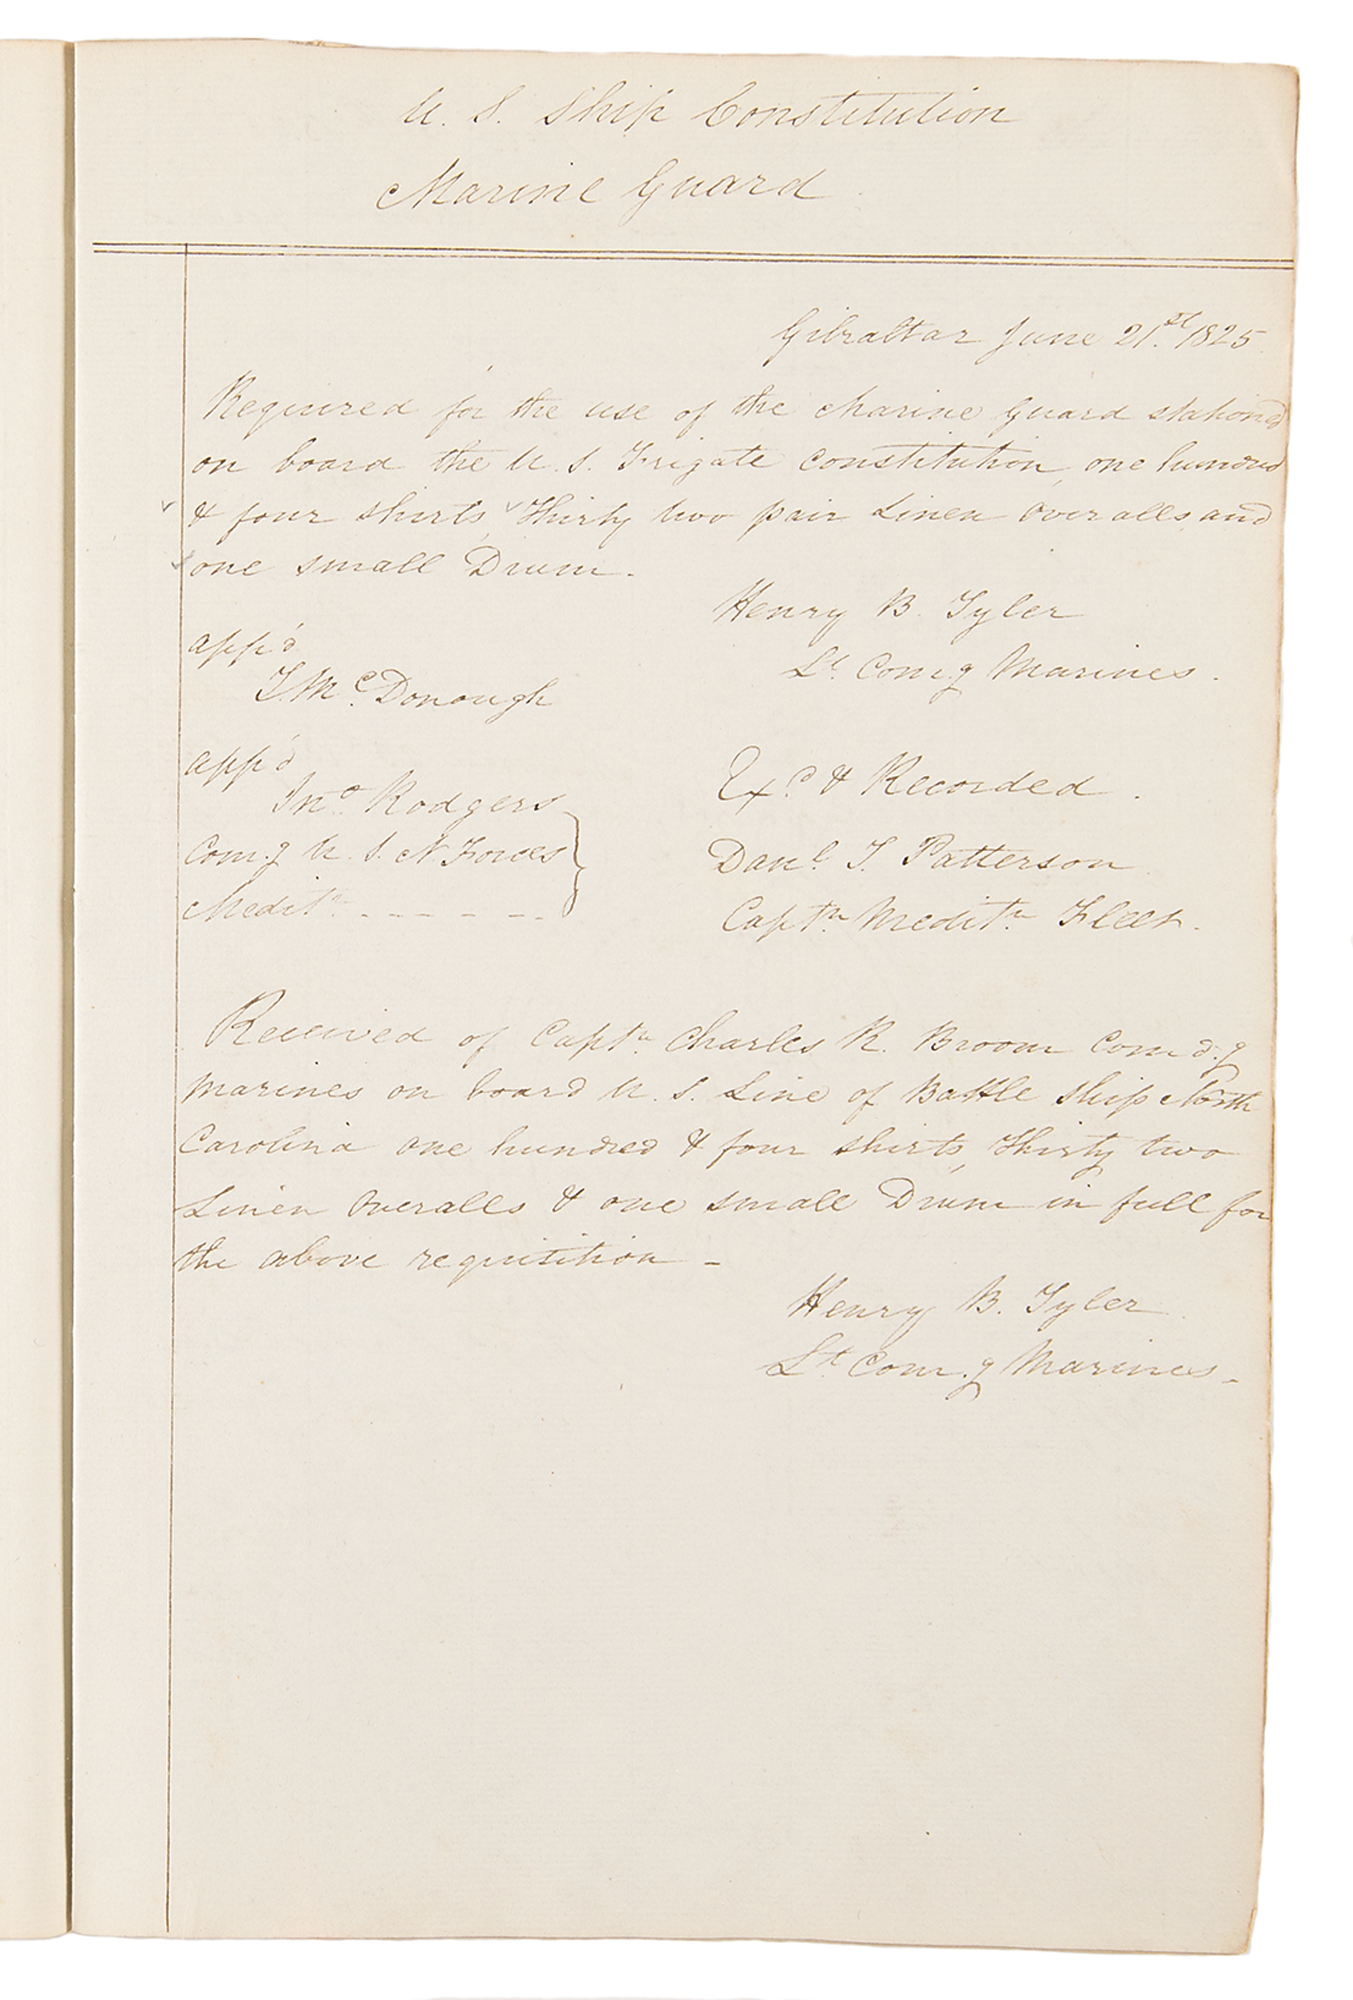 U. S. Ship Constitution
Marine Guard
Gibraltar June 21.st 1825
Required for the use of the Marine Guard stationed
on board the U. S. Frigate Constitution, one hundred
& four shirts, Thirty two pair Linen Overalls, and
one small Drum.
Henry B. Tyler
Lt. Com.g Marines.
app'd
T. Mc.Donough
app'd
Jno. Rodgers
Com.g U. S. N Forces
Meditn. - - - - -
Exd. & Recorded.
Danl. T. Patterson
Captn. Meditn. Fleet.
Received of Captn. Charles R. Broom Comd.g
Marines on board U. S. Line of Battle Ship North
Carolina one hundred & four shirts, Thirty two
Linen Overalls & one small Drum in full for
the above requisition -
Henry B. Tyler
Lt. Com.g Marines -